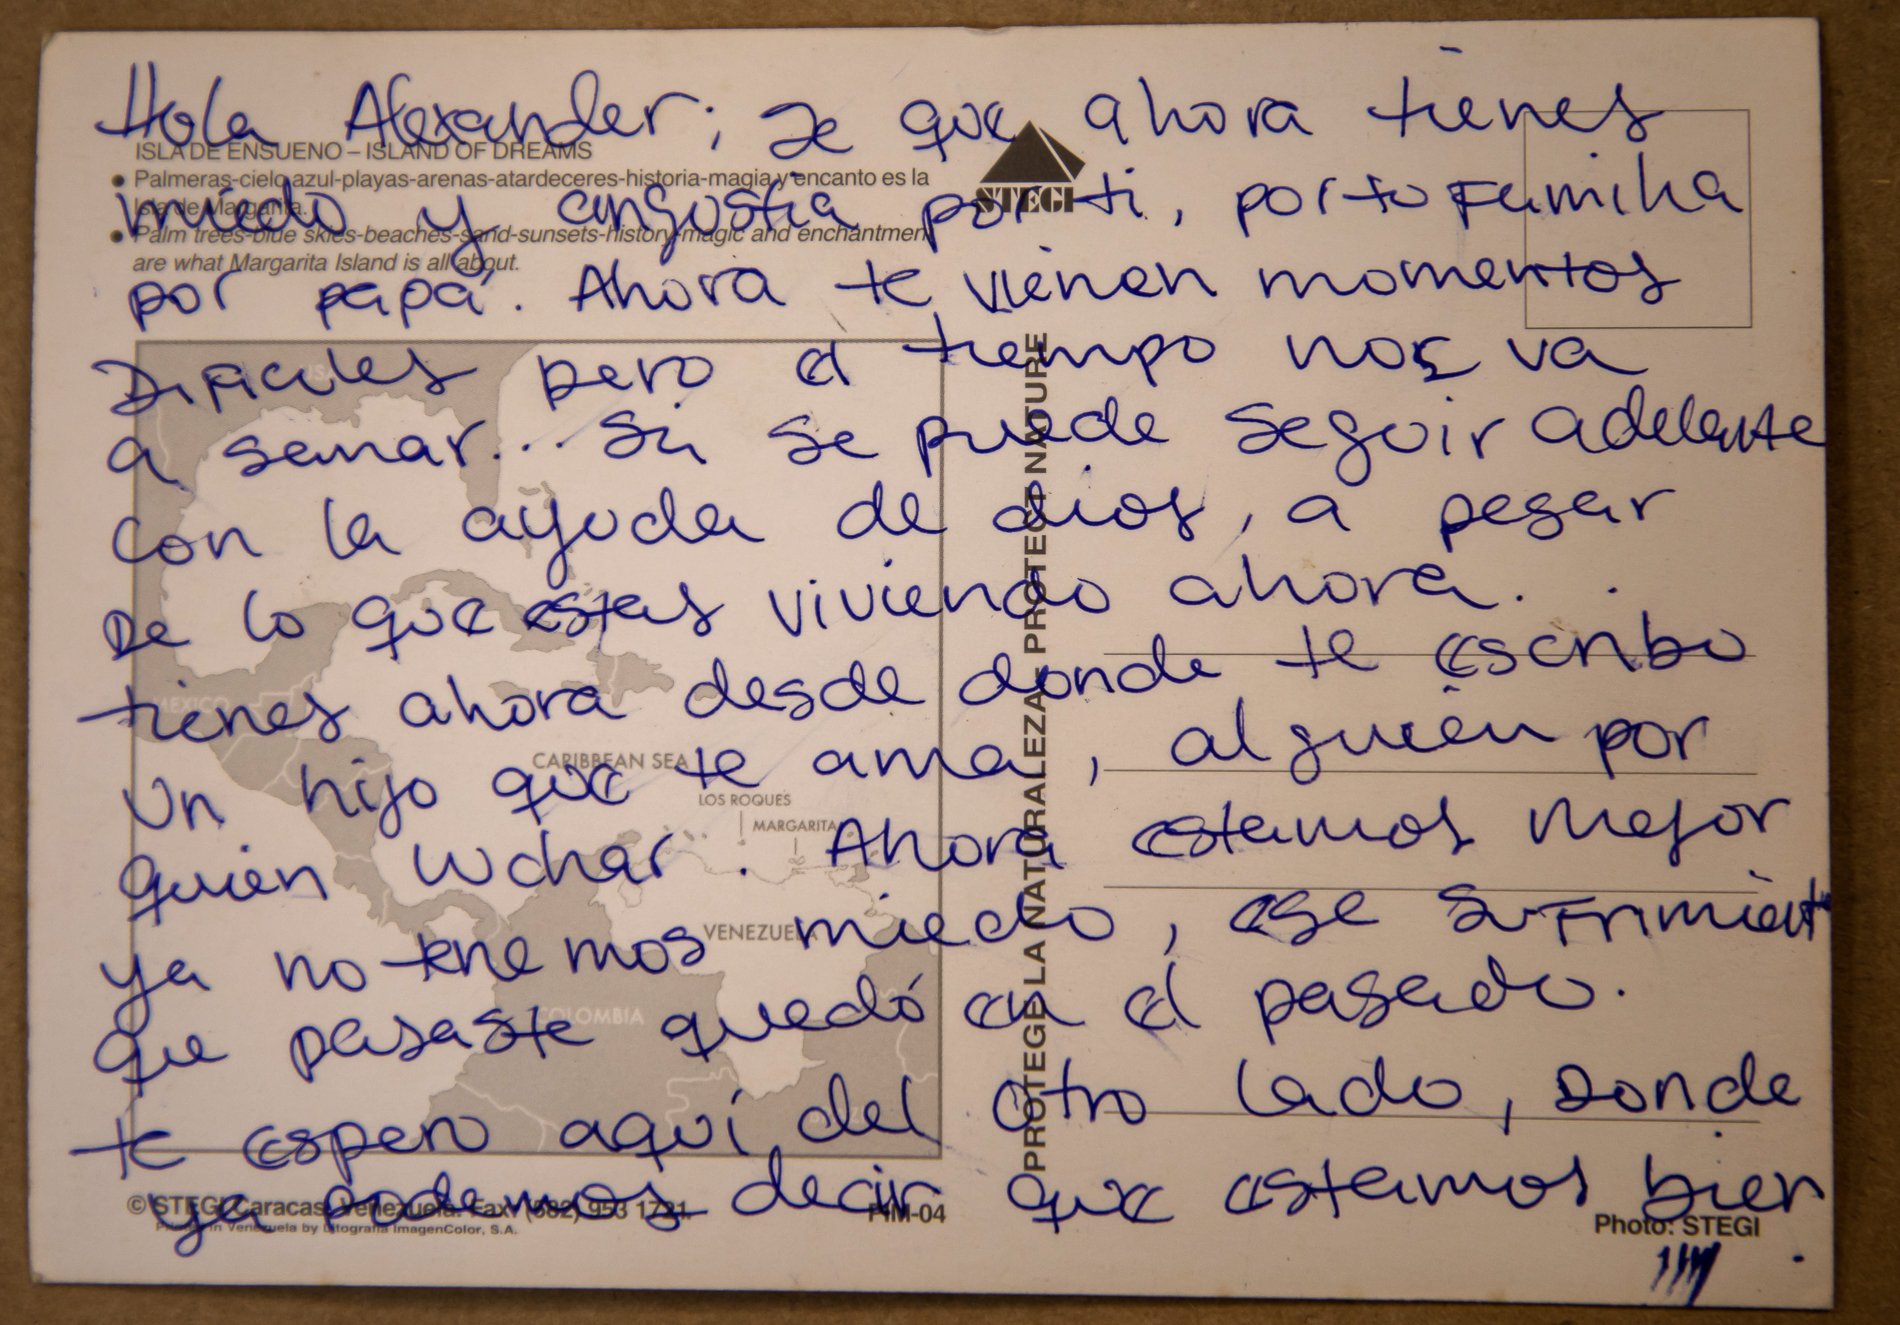 Hola Alexander; se que ahora tienes
miedo y angustia por ti, por tu familia
por papá. Ahora te vienen momentos
Dificiles pero el tiempo nos va
a sanar... Si se puede seguir adelante
con la ayuda de dios, a pesar
De lo que estas viviendo ahora.
tienes ahora desde donde te escribo
un hijo que te ama, alguien por
quien luchar. Ahora estamos mejor
ya no tenemos miedo, ese sufrimiento
que pasaste quedó en el pasado.
te espero aquí del otro lado, Donde
ya podemos decir que estamos bien
ISLA DE ENSUENO – ISLAND OF DREAMS
● Palmeras-cielo azul-playas-arenas-atardeceres-historia-magia y encanto es la
Isla de Margarita.
● Palm trees-blue skies-beaches-sand-sunsets-history-magic and enchantment
are what Margarita Island is all about.
STEGI
USA
MEXICO
CARIBBEAN SEA
LOS ROQUES
MARGARITA
VENEZUELA
COLOMBIA
PROTEGE LA NATURALEZA PROTECT NATURE
© STEGI Caracas, Venezuela. Fax (582) 953 1721.
Printed in Venezuela by Litografia ImagenColor, S.A.
PIM-04
Photo: STEGI